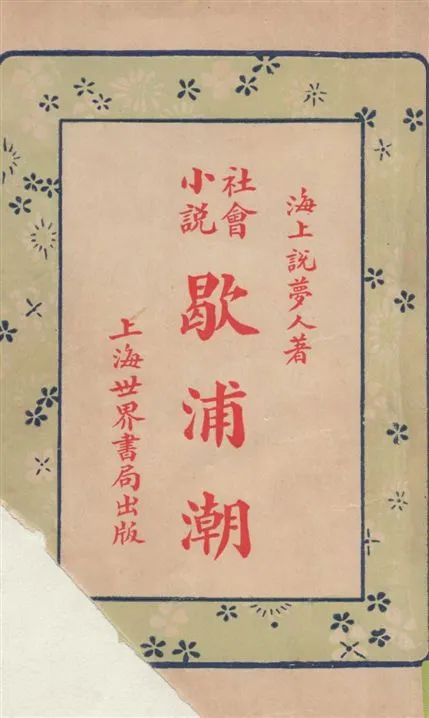 海上説夢人著
社會
小説
歇浦潮
上海世界書局出版